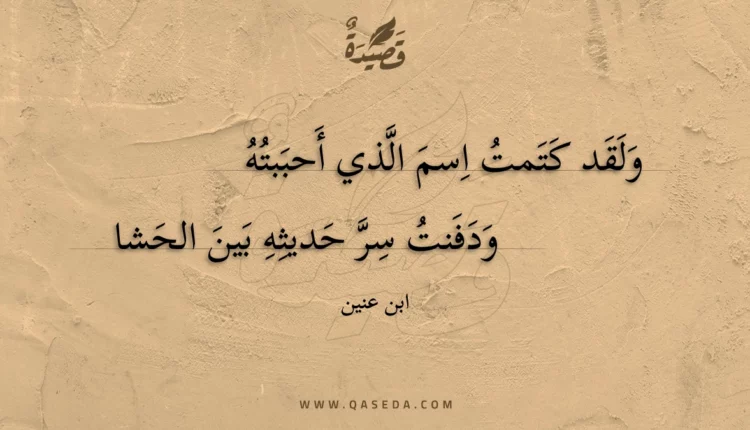 قَصِيدَةٌ
وَلَقَد كَتَمتُ اِسمَ الَّذي أَحبَبتُهُ
وَدَفَنتُ سِرَّ حَديثِهِ بَينَ الحَشا
ابن عنين
WWW.QASEDA.COM